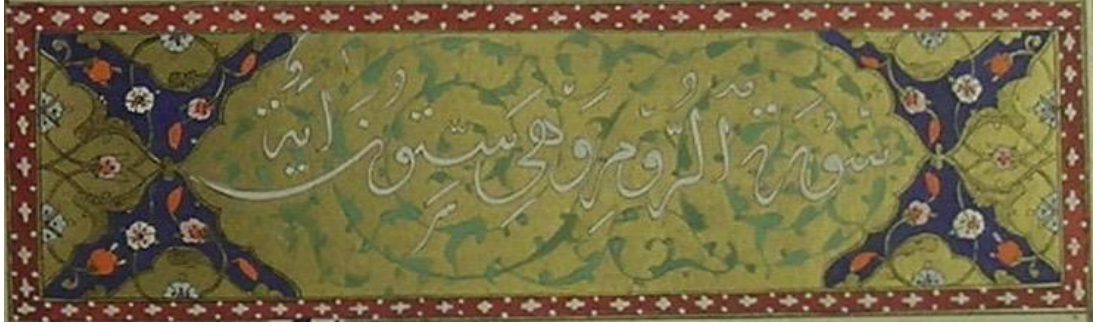 سُورَةُ الرُّومِ وَهِيَ سِتُّونَ اٰيَةً